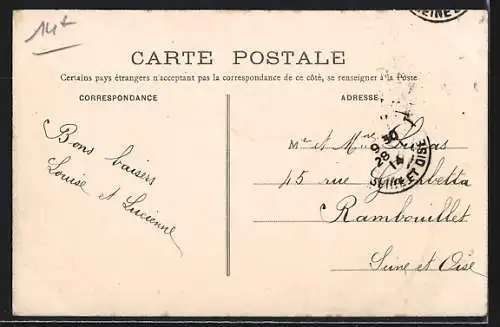 14 t
SEINE
CARTE POSTALE
Certains pays étrangers n'acceptant pas la correspondance de ce côté, se renseigner à la Poste
CORRESPONDANCE
ADRESSE
Bons baisers
Louise et Lucienne
Mr et Mme
45 rue Gambetta
Rambouillet
Seine et Oise
9 30
28
14
SEINE ET OISE